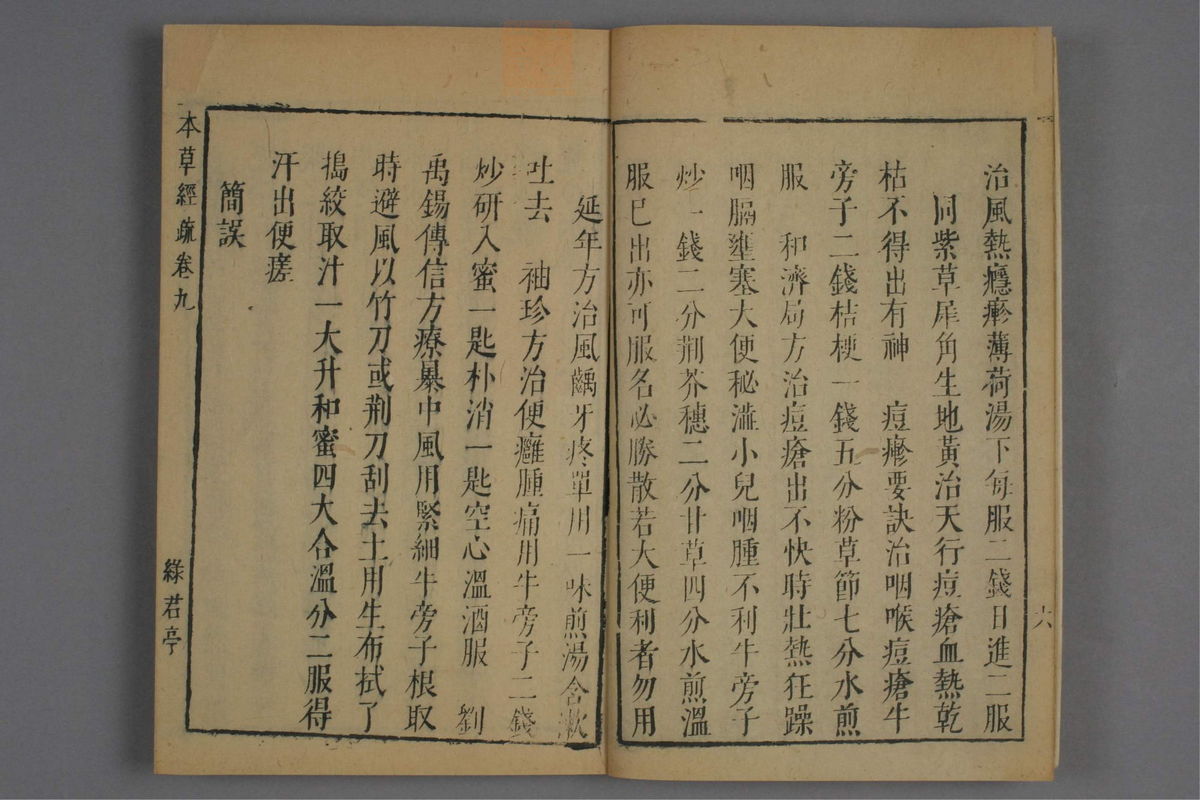 治風熱癮疹薄荷湯下每服二錢日進二服
同紫草犀角生地黃治天行痘瘡血熱乾
枯不得出有神　痘疹要訣治咽喉痘瘡牛
旁子二錢桔梗一錢五分粉草節七分水煎
服　和濟局方治痘瘡出不快時壯熱狂躁
咽膈壅塞大便秘澁小兒咽腫不利牛旁子
炒一錢二分荆芥穗二分甘草四分水煎溫
服已出亦可服名必勝散若大便利者勿用
六
延年方治風齲牙疼單用一味煎湯含漱
吐去　袖珍方治便癰腫痛用牛旁子二錢
炒研入蜜一匙朴消一匙空心溫酒服　劉
禹錫傳信方療暴中風用緊細牛旁子根取
時避風以竹刀或荆刀刮去土用生布拭了
搗絞取汁一大升和蜜四大合溫分二服得
汗出便瘥
簡誤
本草經疏卷九
綠君亭